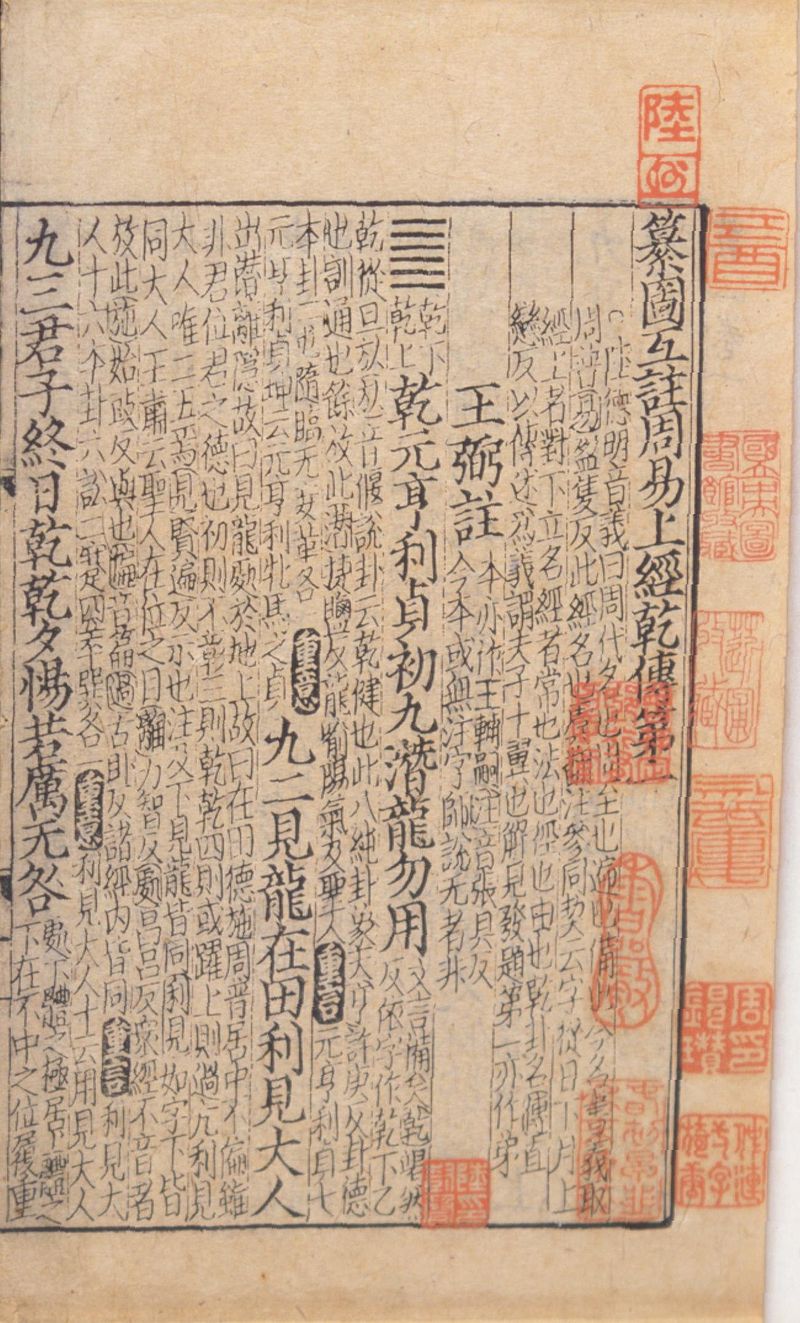 纂圖互註周易上經乾傳第一
陸德明音義曰周代名也周至也遍也備也今名書義取
周普易盈隻反此經名也虞翻注參同契云字從日下月上
經上者對下立名經者常也法也徑也由也乾卦名傳直
戀反以傳述爲義謂夫子十翼也解見發題第一亦作弟
王弼註
本亦作王輔嗣注音張具反
今本或無注字師說无者非
乾下
乾上
乾元亨利貞初九潛龍勿用
文言備矣乾竭然
反依字作乾下乙
乾從旦㫃㫃音偃說卦云乾健也此八純卦象天亨許庚反卦德
也訓通也餘放此潛捷鹽反龍喻陽氣及聖人
重言
元亨利貞七
本卦二屯隨臨无妄革各一
重意
元亨利貞坤云元亨利牝馬之貞
九二見龍在田利見大人
出潛離隱故曰見龍處於地上故曰在田德施周普居中不偏雖
非君位君之德也初則不彰三則乾乾四則或躍上則過亢利見
大人唯二五焉見賢遍反示也注及下見龍皆同利見如字下皆
同大人王肅云聖人在位之目離力智反處昌呂反衆經不音者
放此施始豉反與也偏音篇過古臥反諸經内皆同
重言
利見大
人十六本卦六訟二蹇四萃巽各一
重意
利見大人十云用見大人
九三君子終日乾乾夕惕若厲无咎
處下體之極居上體之
下在不中之位履重